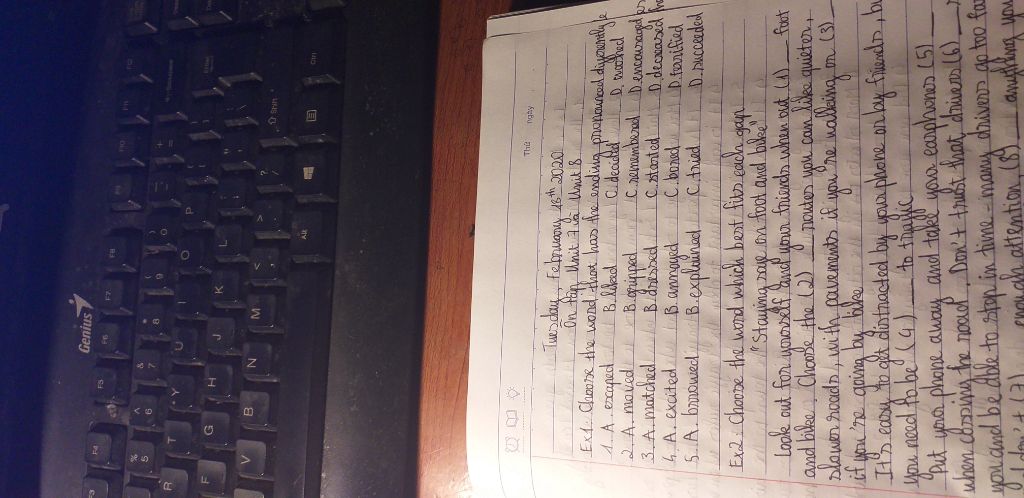 Genius
Thứ
ngày
Tuesday, February 25th 2020
On tap Unit 7 và Unit 8
Ex1. Choose the word that has the ending pronounced differently
1. A. escaped B. liked C. decided D. mothed
2. A. moved B. gripped C. remembered D. encouraged
3. A. matched B. dressed C. started D. decreased
4. A. excited B. managed C. bored D. terrified
5. A. browsed B. explained C. tried D. succeeded
Ex2. Choose the word which best fits each gap.
"Staying safe on foot and bike"
Look out for yourself and your friends when out (1) ___ foot
and bike. Choose the (2) ___ routes you can like quieter,
slower roads, with pavements if you're walking or (3) ___
if you're going by bike.
It's easy to get distracted by your phone or by friends, bu
you need to be (4) ___ to traffic
Put your phone away and take your earphones (5) ___
when clossing the road. Don't trust that drivers (6) ___
you and be able to stop in time - many drivers go too fas
(7) ___ enough attention. (8) ___ anything you